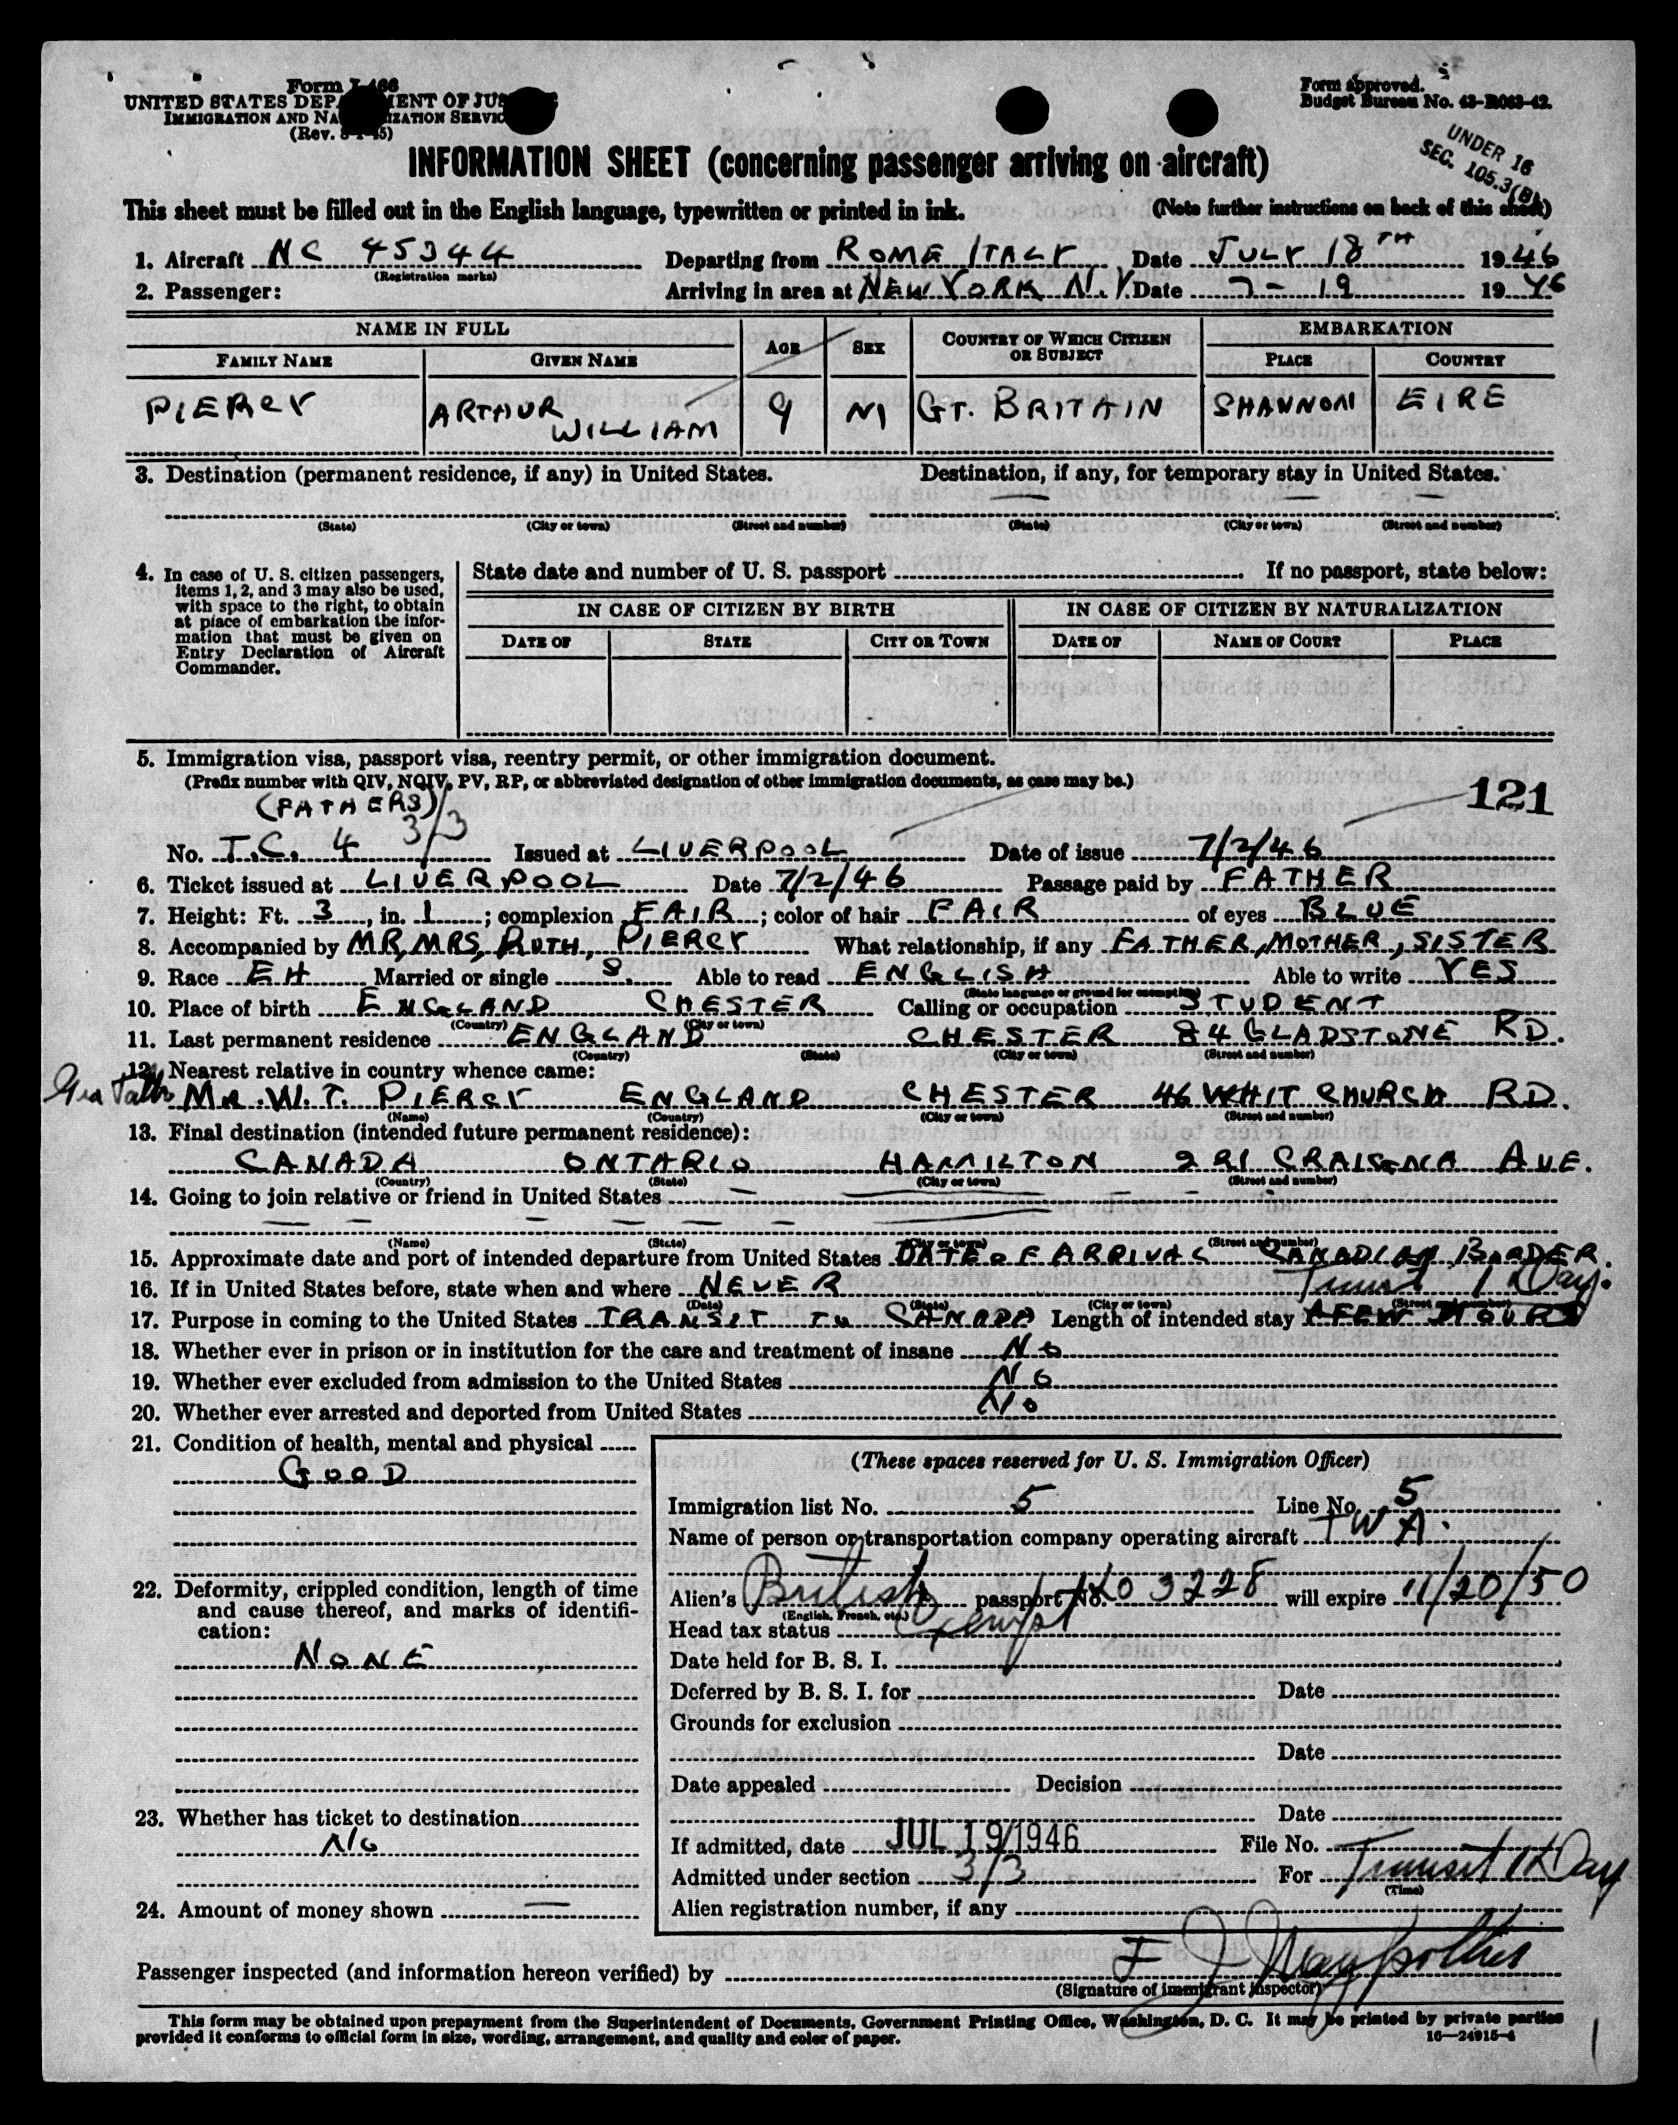 Form I-466
UNITED STATES DEPARTMENT OF JUSTICE
IMMIGRATION AND NATURALIZATION SERVICE
(Rev. 45)
Form approved.
Budget Bureau No. 43-R063-42.
UNDER 16
SEC. 105.3(B)
INFORMATION SHEET (concerning passenger arriving on aircraft)
This sheet must be filled out in the English language, typewritten or printed in ink. (Note further instructions on back of this sheet)
1. Aircraft NC 45344 Departing from ROME ITALY Date JULY 18TH 1946
(Registration marks)
2. Passenger: Arriving in area at NEW YORK N.Y. Date 7-19 1946
NAME IN FULL AGE SEX COUNTRY OF WHICH CITIZEN OR SUBJECT EMBARKATION
FAMILY NAME GIVEN NAME PLACE COUNTRY
PIERCY ARTHUR WILLIAM 9 M GT. BRITAIN SHANNON EIRE
3. Destination (permanent residence, if any) in United States. Destination, if any, for temporary stay in United States.
(State) (City or town) (Street and number) (State) (City or town) (Street and number)
4. In case of U. S. citizen passengers, items 1, 2, and 3 may also be used, with space to the right, to obtain at place of embarkation the information that must be given on Entry Declaration of Aircraft Commander.
State date and number of U. S. passport If no passport, state below:
IN CASE OF CITIZEN BY BIRTH IN CASE OF CITIZEN BY NATURALIZATION
DATE OF STATE CITY OR TOWN DATE OF NAME OF COURT PLACE
5. Immigration visa, passport visa, reentry permit, or other immigration document.
(Prefix number with QIV, NQIV, PV, RP, or abbreviated designation of other immigration documents, as case may be.)
(FATHERS) 3/3 121
No. T.C. 4 Issued at LIVERPOOL Date of issue 7/2/46
6. Ticket issued at LIVERPOOL Date 7/2/46 Passage paid by FATHER
7. Height: Ft. 3, in. 1; complexion FAIR; color of hair FAIR of eyes BLUE
8. Accompanied by MR, MRS, RUTH, PIERCY What relationship, if any FATHER, MOTHER, SISTER
9. Race EH Married or single S. Able to read ENGLISH Able to write YES
(State language or ground for exemption)
10. Place of birth ENGLAND CHESTER Calling or occupation STUDENT
(Country) (City or town)
11. Last permanent residence ENGLAND CHESTER 84 GLADSTONE RD.
(Country) (State) (City or town) (Street and number)
12. Nearest relative in country whence came:
MR. W. T. PIERCY ENGLAND CHESTER 46 WHITCHURCH RD.
(Name) (Country) (City or town) (Street and number)
13. Final destination (intended future permanent residence):
CANADA ONTARIO HAMILTON AVE.
(Country) (State) (City or town) (Street and number)
14. Going to join relative or friend in United States
(Name) (State) (City or town) (Street and number)
15. Approximate date and port of intended departure from United States DATE OF ARRIVAL CANADIAN BORDER.
16. If in United States before, state when and where NEVER Transit 1 Day.
(Date) (State) (City or town) (Street and number)
17. Purpose in coming to the United States TRANSIT TO CANADA Length of intended stay A FEW HOURS
18. Whether ever in prison or in institution for the care and treatment of insane NO
19. Whether ever excluded from admission to the United States NO
20. Whether ever arrested and deported from United States NO
21. Condition of health, mental and physical
GOOD
22. Deformity, crippled condition, length of time and cause thereof, and marks of identification:
NONE
23. Whether has ticket to destination
NO
24. Amount of money shown —
(These spaces reserved for U. S. Immigration Officer)
Immigration list No. 5 Line No. 5
Name of person or transportation company operating aircraft TWA.
Alien's British passport No. 03228 will expire 11/20/50
(English, French, etc.)
Head tax status Exempt
Date held for B. S. I.
Deferred by B. S. I. for Date
Grounds for exclusion
Date
Date appealed Decision
Date
If admitted, date JUL 19 1946 File No.
Admitted under section 3/3 For Transit 1 Day
(Time)
Alien registration number, if any
Passenger inspected (and information hereon verified) by
(Signature of immigrant inspector)
This form may be obtained upon prepayment from the Superintendent of Documents, Government Printing Office, Washington, D. C. It may be printed by private parties
provided it conforms to official form in size, wording, arrangement, and quality and color of paper. 16—24915-4